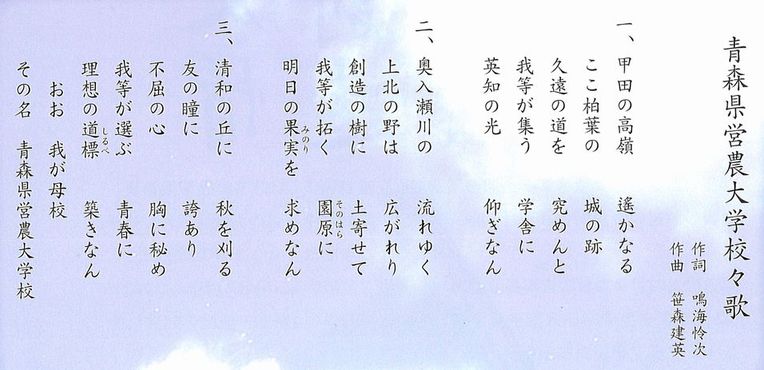 青森県営農大学校々歌
作詞　鳴海怜次
作曲　笹森建英
一、甲田の高嶺　遙かなる
ここ柏葉の　城の跡
久遠の道を　究めんと
我等が集う　学舎に
英知の光　仰ぎなん
二、奥入瀬川の　流れゆく
上北の野は　広がれり
創造の樹に　土寄せて
我等が拓く　園原に
そのはら
明日の果実を　求めなん
みのり
三、清和の丘に　秋を刈る
友の瞳に　誇あり
不屈の心　胸に秘め
我等が選ぶ　青春に
理想の道標　築きなん
しるべ
おお　我が母校
その名　青森県営農大学校